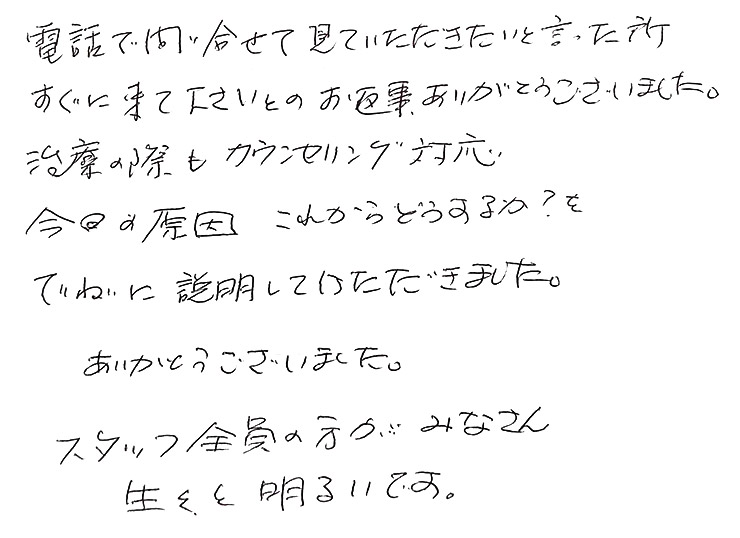 電話で問い合せて見ていただきたいと言った所
すぐに来て下さいとのお返事ありがとうございました。
治療の際も カウンセリング対応
今回の原因 これからどうするか?を
でいねいに 説明していただきました。
ありがとうございました。
スタッフ全員の方が みなさん
生き生きと 明るいです。